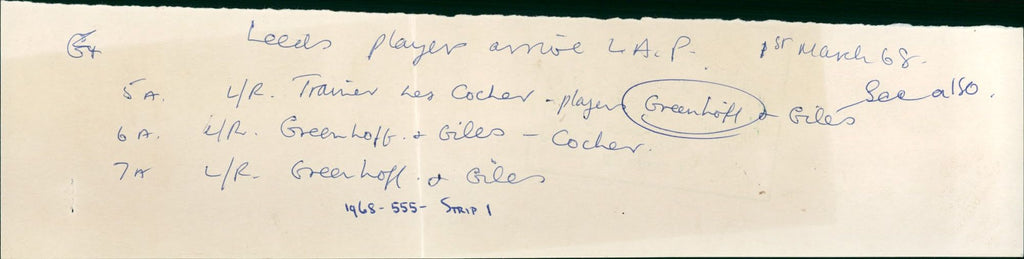 Leeds players arrive L.A.P. 1st March 68.
5A. L/R. Trainer Les Cocher - players Greenhoff & Giles See also.
6A. L/R. Greenhoff. & Giles - Cocher.
7A L/R. Greenhoff. & Giles
1968-555- STRIP 1